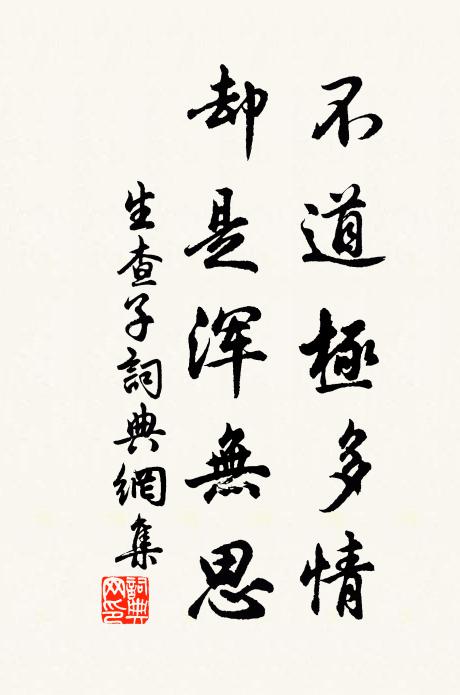 不道極多情
却是浑無思
生查子詞典網集
詞典网印